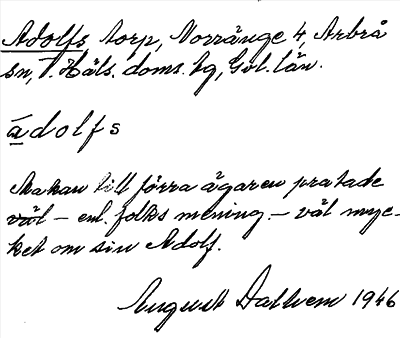 Adolfs torp, Norränge 4, Arbrå
sn, V. Häls. doms. hg, Gvl. län.
ādolfs
Makan till förra ägaren pratade
väl – enl. folks mening – väl myc-
ket om sin Adolf.
August Dahlvem 1946